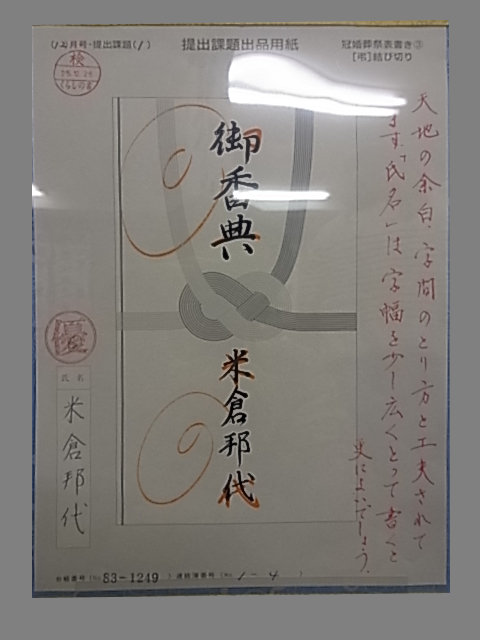 (12月号・提出課題(1)
提出課題出品用紙
冠婚葬祭表書き③
[弔]結び切り
検
25.12.26
くらしの書
天地の余白、字間のとり方と工夫されて
ます。「氏名」は字幅を少し広くとって書くと
更によいでしょう。
御香典
米倉邦代
優
氏名
米倉邦代
83-1249
連絡簿番号(No. 1-4 )